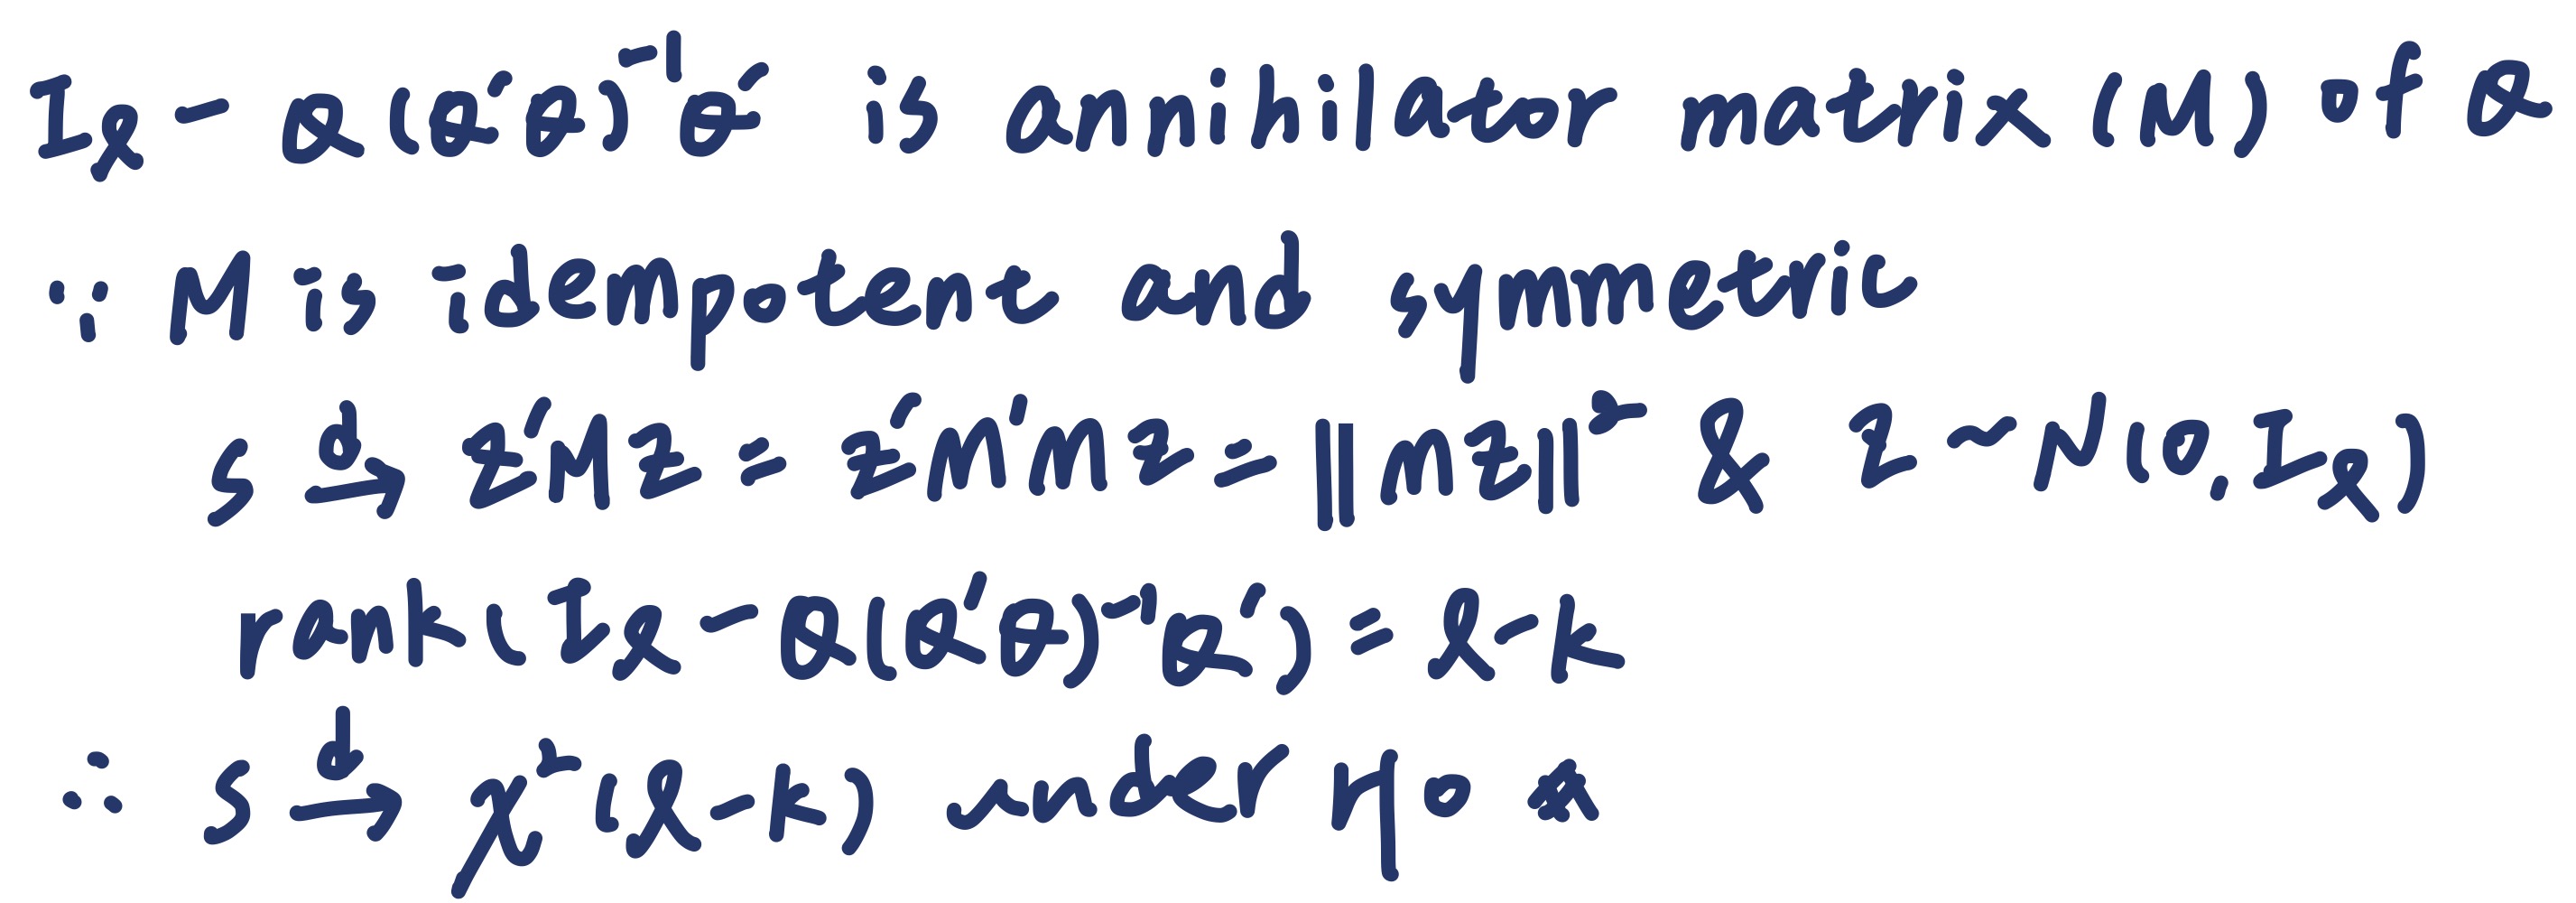 I_ℓ - Q(Q'Q)^{-1}Q' is annihilator matrix (M) of Q
∵ M is idempotent and symmetric
S →^d Z'MZ = Z'M'MZ = ||MZ||² & Z ~ N(0, I_ℓ)
rank(I_ℓ - Q(Q'Q)^{-1}Q') = ℓ-k
∴ S →^d χ²(ℓ-k) under H0 #